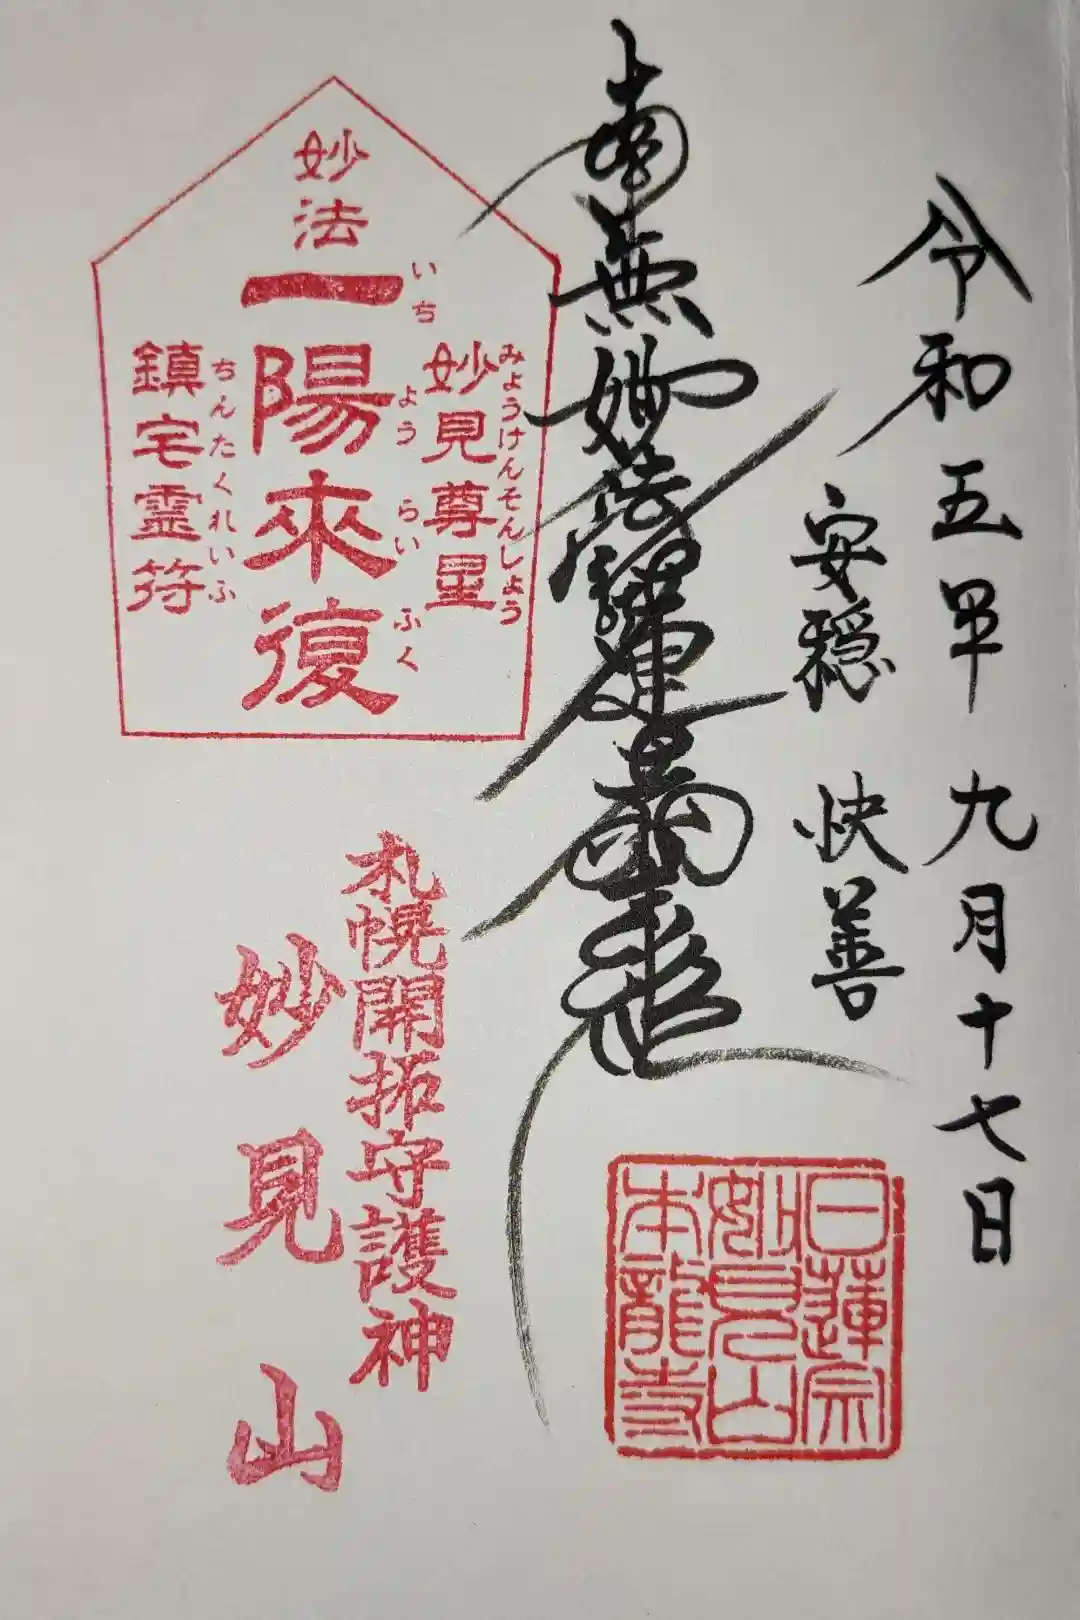 令和五年 九月十七日
安穏 快善
南無妙法
日蓮宗
妙見山
本龍寺
妙法
一陽来復
いち よう らい ふく
妙見尊星
みょうけんそんしょう
鎮宅霊符
ちんたくれいふ
札幌開拓守護神
妙見山